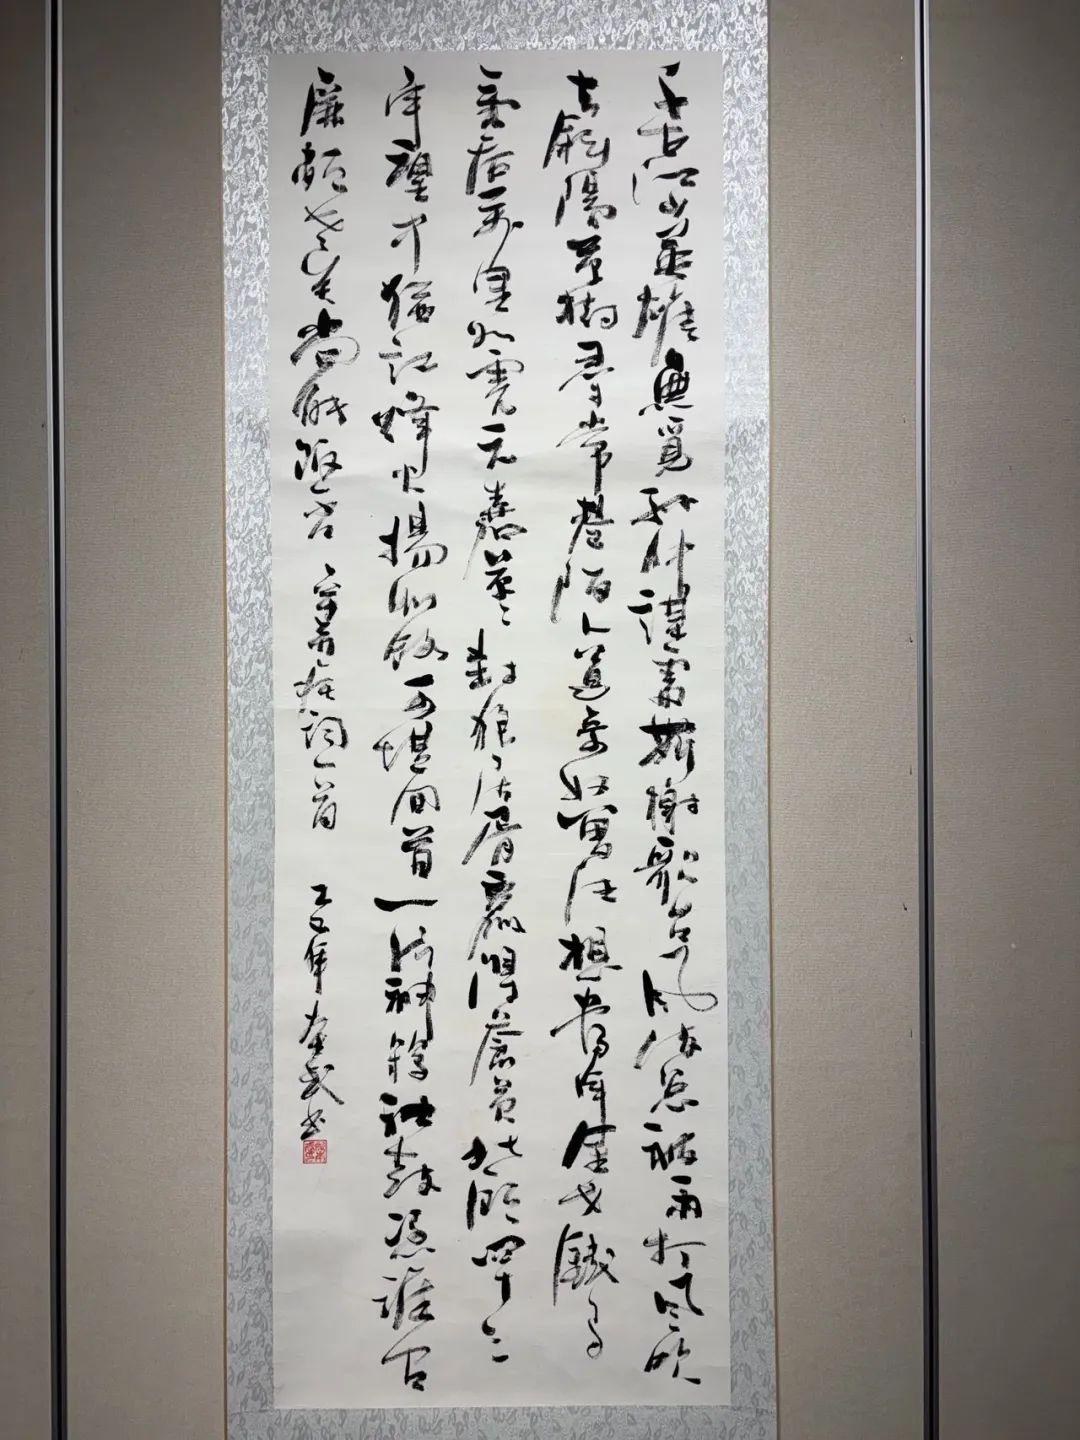 千古江山英雄無覓孫仲謀處舞榭歌台風流總被雨打風吹
去斜陽草樹尋常巷陌人道寄奴曾住想當年金戈鐵馬
氣吞萬里如虎元嘉草草封狼居胥贏得倉皇北顧四十三
年望中猶記烽火揚州路可堪回首一片神鴉社鼓憑誰問
廉頗老矣尚能飯否 辛棄疾詞一首 乙巳年 武書